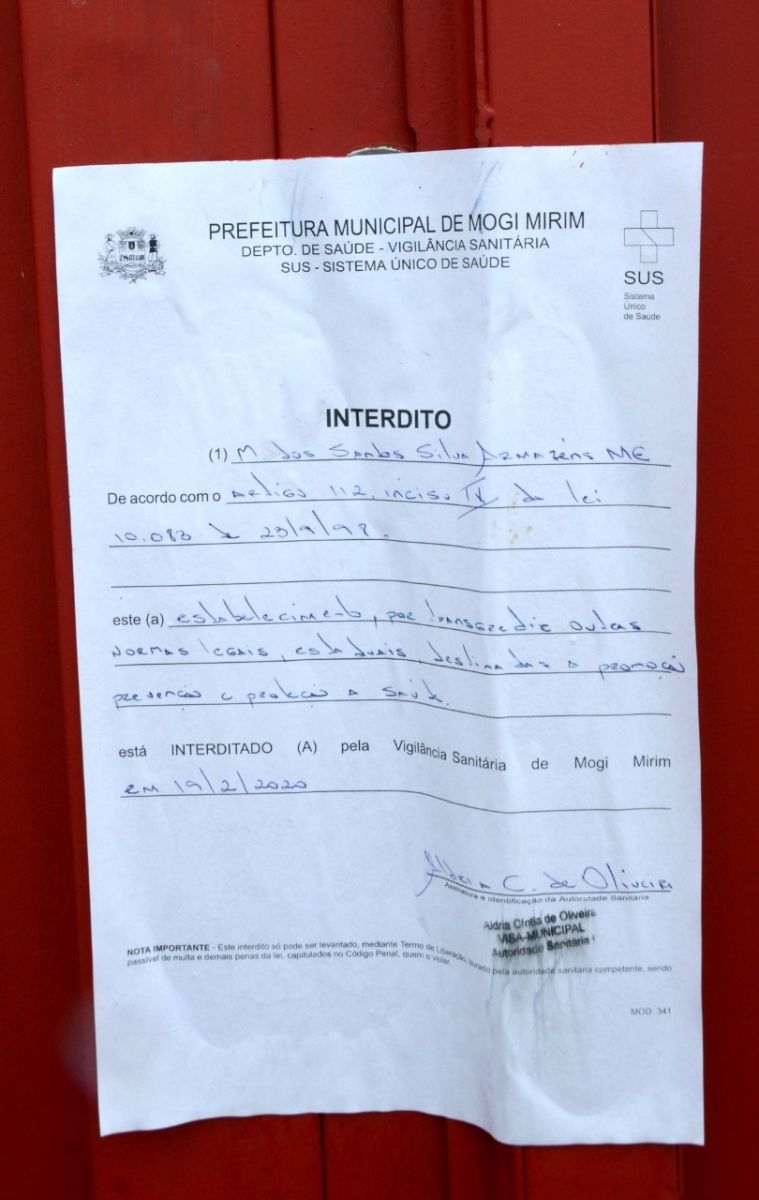 PREFEITURA MUNICIPAL DE MOGI MIRIM
DEPTO. DE SAÚDE - VIGILÂNCIA SANITÁRIA
SUS - SISTEMA ÚNICO DE SAÚDE
SUS
Sistema
Único
de Saúde
INTERDITO
(1) M. dos Santos Silva Armazéns ME
De acordo com o artigo 112, inciso IX da lei
10.083 de 23/9/98.
este (a) estabelecimento, por transgredir outras
normas legais, estaduais, destinadas a promoção
prevenção e proteção a saúde.
está INTERDITADO (A) pela Vigilância Sanitária de Mogi Mirim
em 19/2/2020
C. de Oliveira
Assinatura e identificação da Autoridade Sanitária
Aldria Cíntia de Oliveira
VISA-MUNICIPAL
Autoridade Sanitária
NOTA IMPORTANTE - Este interdito só pode ser levantado, mediante Termo de Liberação, lavrado pela autoridade sanitária competente, sendo
passível de multa e demais penas da lei, capitulados no Código Penal, quem o violar.
MOD. 341